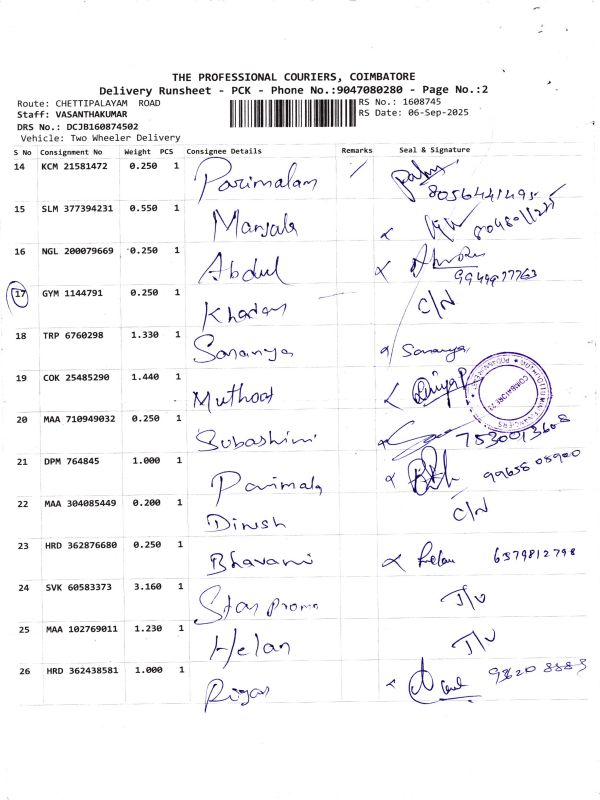 THE PROFESSIONAL COURIERS, COIMBATORE
Delivery Runsheet - PCK - Phone No.:9047080280 - Page No.:2
Route: CHETTIPALAYAM ROAD RS No.: 1608745
Staff: VASANTHAKUMAR RS Date: 06-Sep-2025
DRS No.: DCJB160874502
Vehicle: Two Wheeler Delivery
S No Consignment No Weight PCS Consignee Details Remarks Seal & Signature
14 KCM 21581472 0.250 1 Parimalam
15 SLM 377394231 0.550 1 Manjula
16 NGL 200079669 0.250 1 Abdul
17 GYM 1144791 0.250 1 Khadar C/N
18 TRP 6760298 1.330 1 Saranya Saranya
19 COK 25485290 1.440 1 Muthoot
COIMBATORE
20 MAA 710949032 0.250 1 Subashini 7530013608
21 DPM 764845 1.000 1 Parimala
22 MAA 304085449 0.200 1 Dinesh C/N
23 HRD 362876680 0.250 1 Bhavani Helan 6379812798
24 SVK 60583373 3.160 1 Star Promo I/V
25 MAA 102769011 1.230 1 Helan I/V
26 HRD 362438581 1.000 1 Riyas